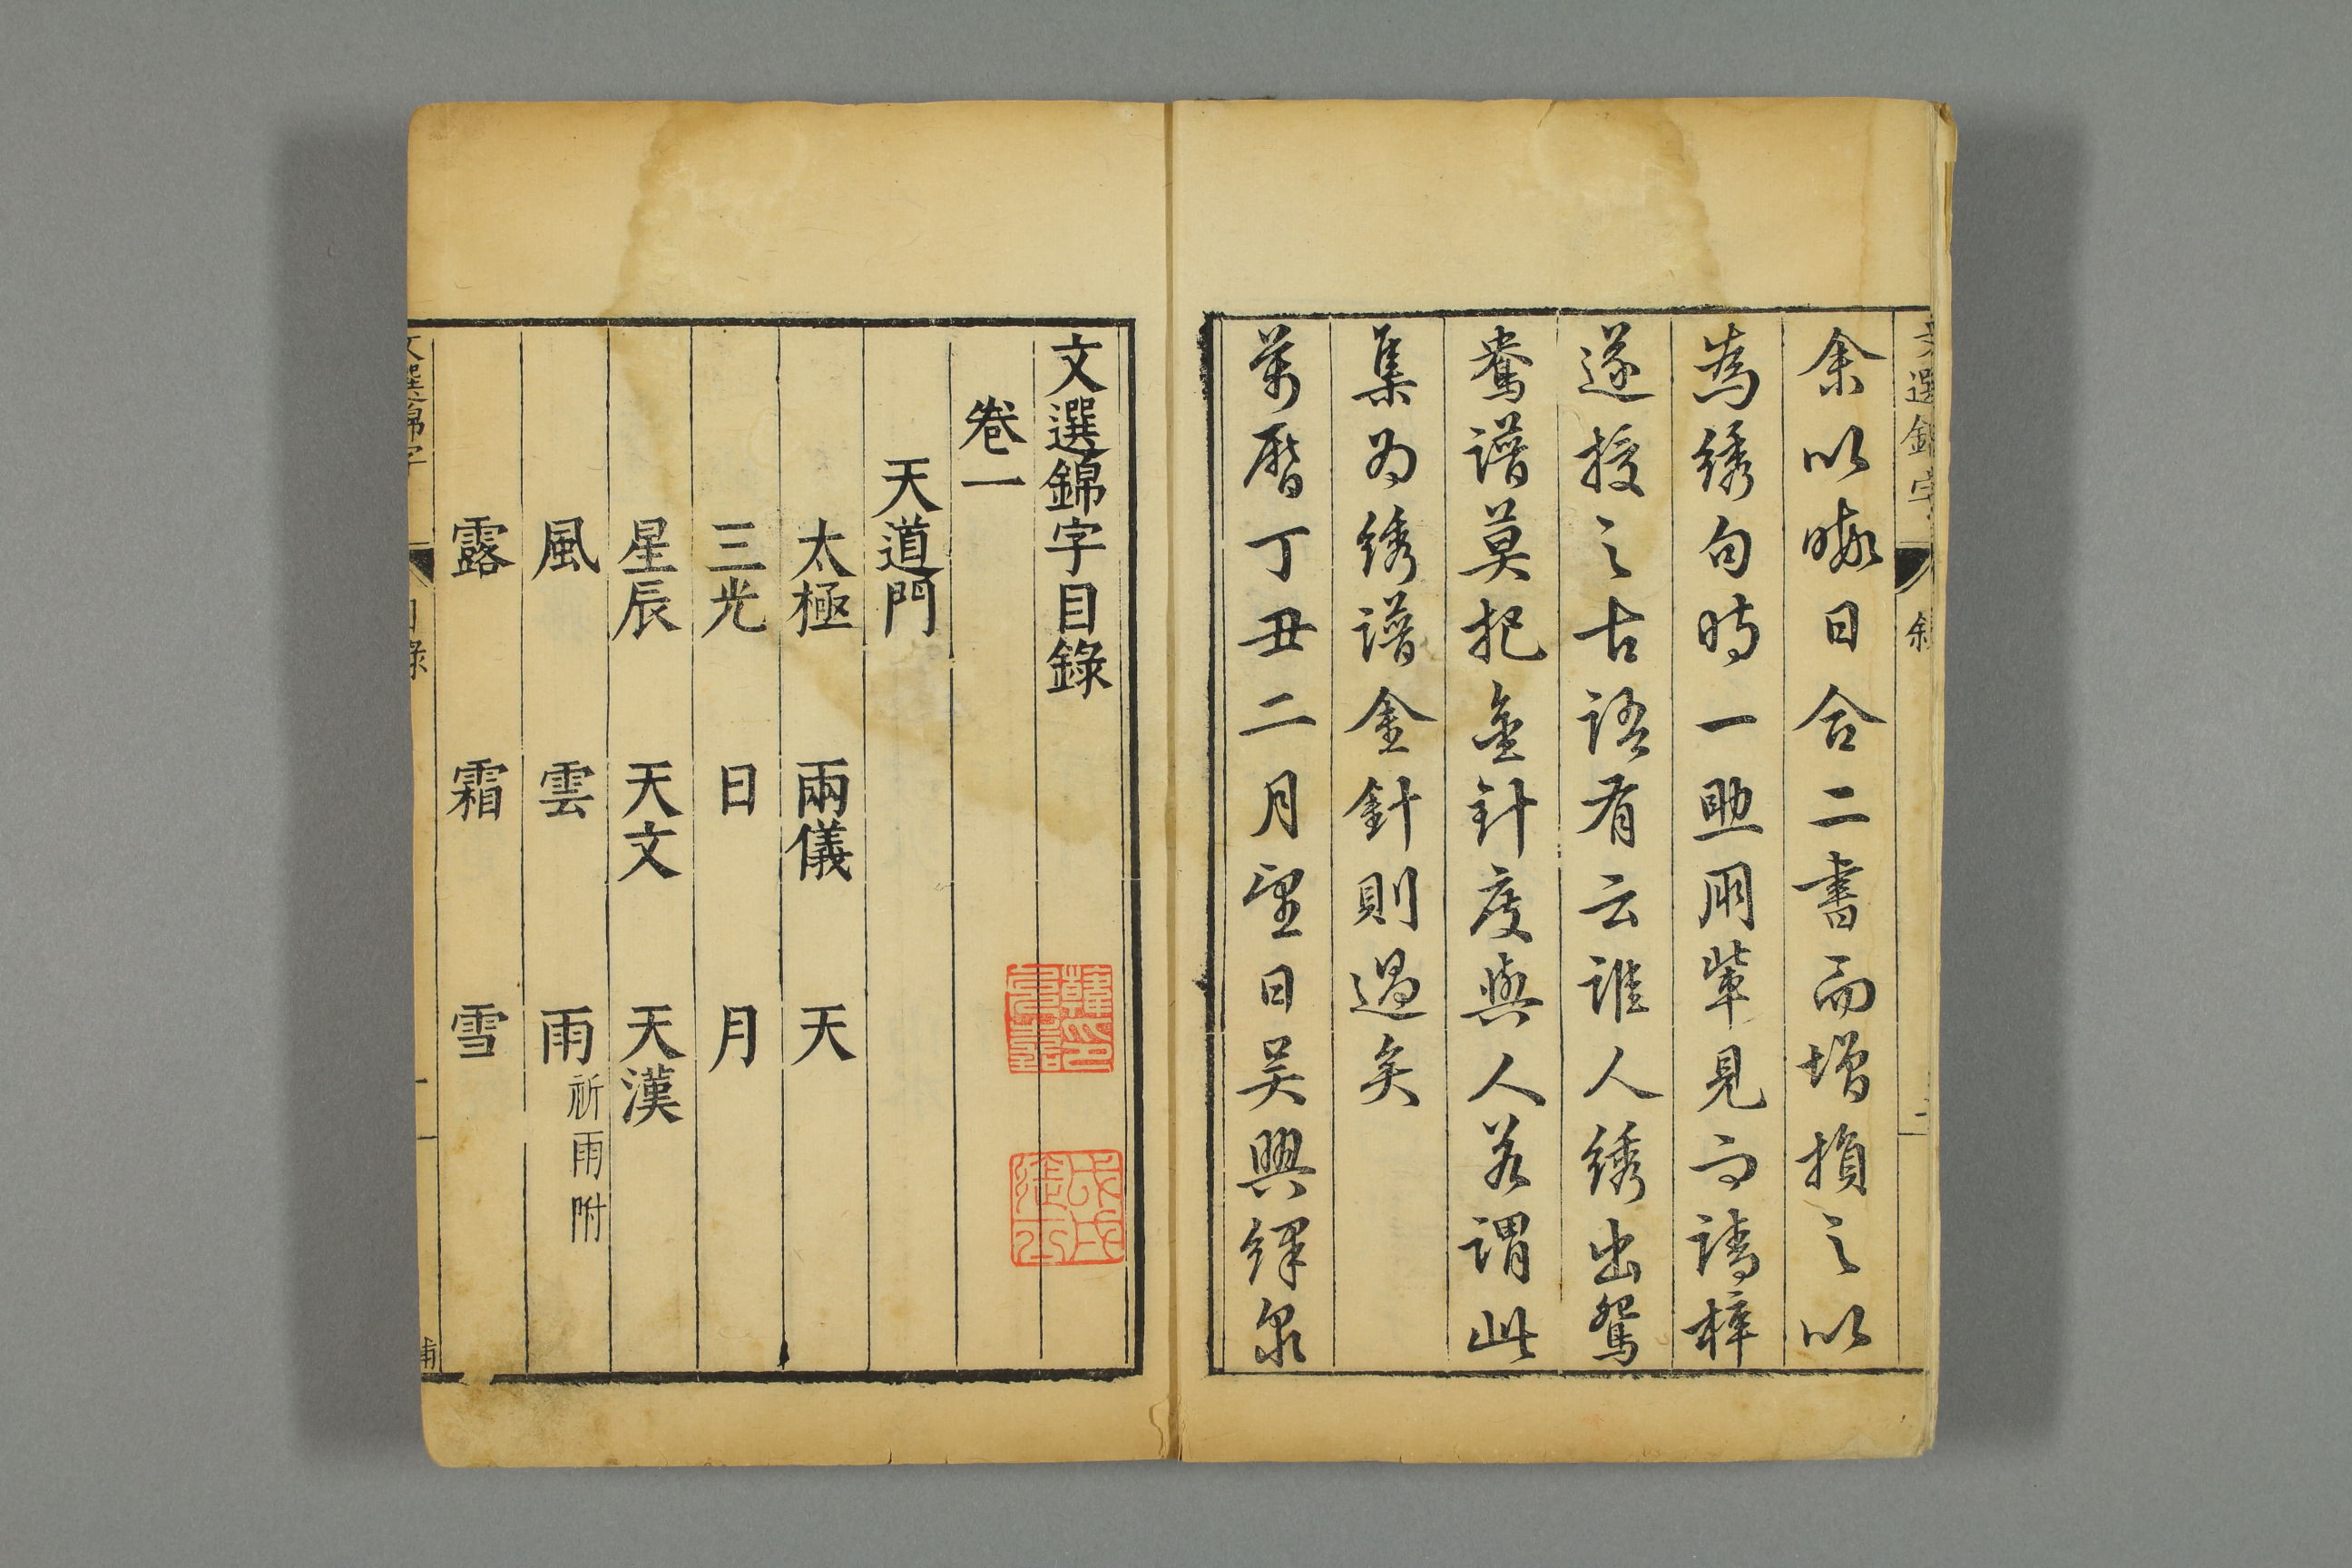 文選錦字 敘 二
余以暇日合二書而增損之以
為綉句時一助朋輩見而請梓
遂授之古語有云誰人綉出鴛
鴦譜莫把金針度與人若謂此
集為綉譜金針則過矣
萬曆丁丑二月望日吳興繹泉
文選錦字目錄
卷一
天道門
太極 兩儀 天
三光 日 月
星辰 天文 天漢
風 雲 雨 祈雨附
露 霜 雪
文選錦字 目錄 一